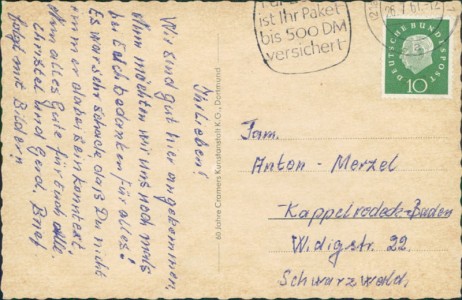 Ihr Lieben!
Wir sind gut hier angekommen,
Nun möchten wir uns nochmals
bei Euch bedanken für alles!
Es war sehr schade daß Du nicht
immer dabei sein konntest.
Nun alles Gute für Euch alle.
Christel und Gerd. Brief
folgt mit Bildern
60 Jahre Cramers Kunstanstalt K.G., Dortmund
ist Ihr Paket
bis 500 DM
versichert
26.7.61.-12
DEUTSCHE BUNDESPOST
10
Fam.
Anton - Merzel
Kappelrodeck-Baden
Widigstr. 22.
Schwarzwald,